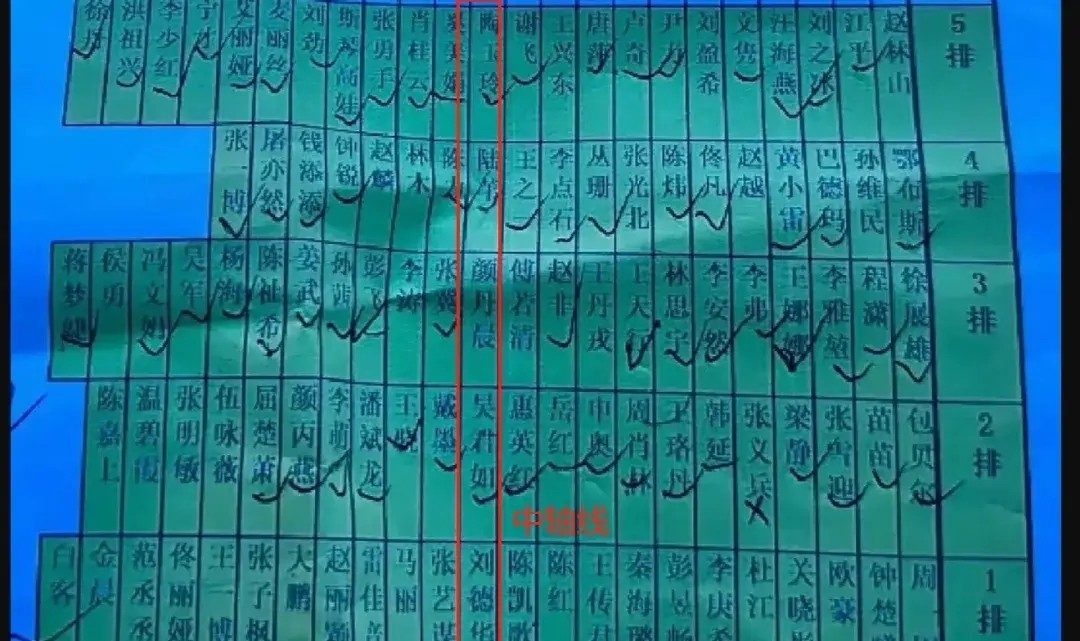 5排
赵林山
江平
刘之冰
汪海燕
文隽
刘盈希
尹力
卢奇
唐萍
王兴东
谢飞
陶玉玲
吴美娟
肖桂云
张勇手
斯琴高娃
刘劲
麦丽丝
艾丽娅
宁才
李少红
洪祖兴
徐
4排
鄂布斯
孙维民
巴德玛
黄小雷
赵越
佟凡
陈炜
张光北
丛珊
李点石
王之一
陆
陈
林木
赵麟
钟锐
钱添添
屠亦然
张一博
3排
徐展雄
程潇
李雅堃
王娜娜
李弗
李安然
林思宇
王天行
王丹戎
赵非
傅若清
颜丹晨
张冀
李涛
彭飞
孙茜
姜武
陈祉希
杨海
吴军
冯文娟
侯勇
蒋梦婕
2排
包贝尔
苗苗
张雪迎
梁静
张义兵
韩延
王珞丹
周肖林
申奥
岳红
惠英红
吴君如
戴墨
王骁
潘斌龙
李萌
颜丙燕
屈楚萧
伍咏薇
张明敏
温碧霞
陈嘉上
中轴线
1排
周
钟楚
欧豪
关晓彤
杜江
李庚希
彭昱畅
秦海璐
王传君
陈红
陈凯歌
刘德华
张艺谋
马丽
雷佳音
赵丽颖
大鹏
张子枫
王一博
佟丽娅
范丞丞
金晨
白客